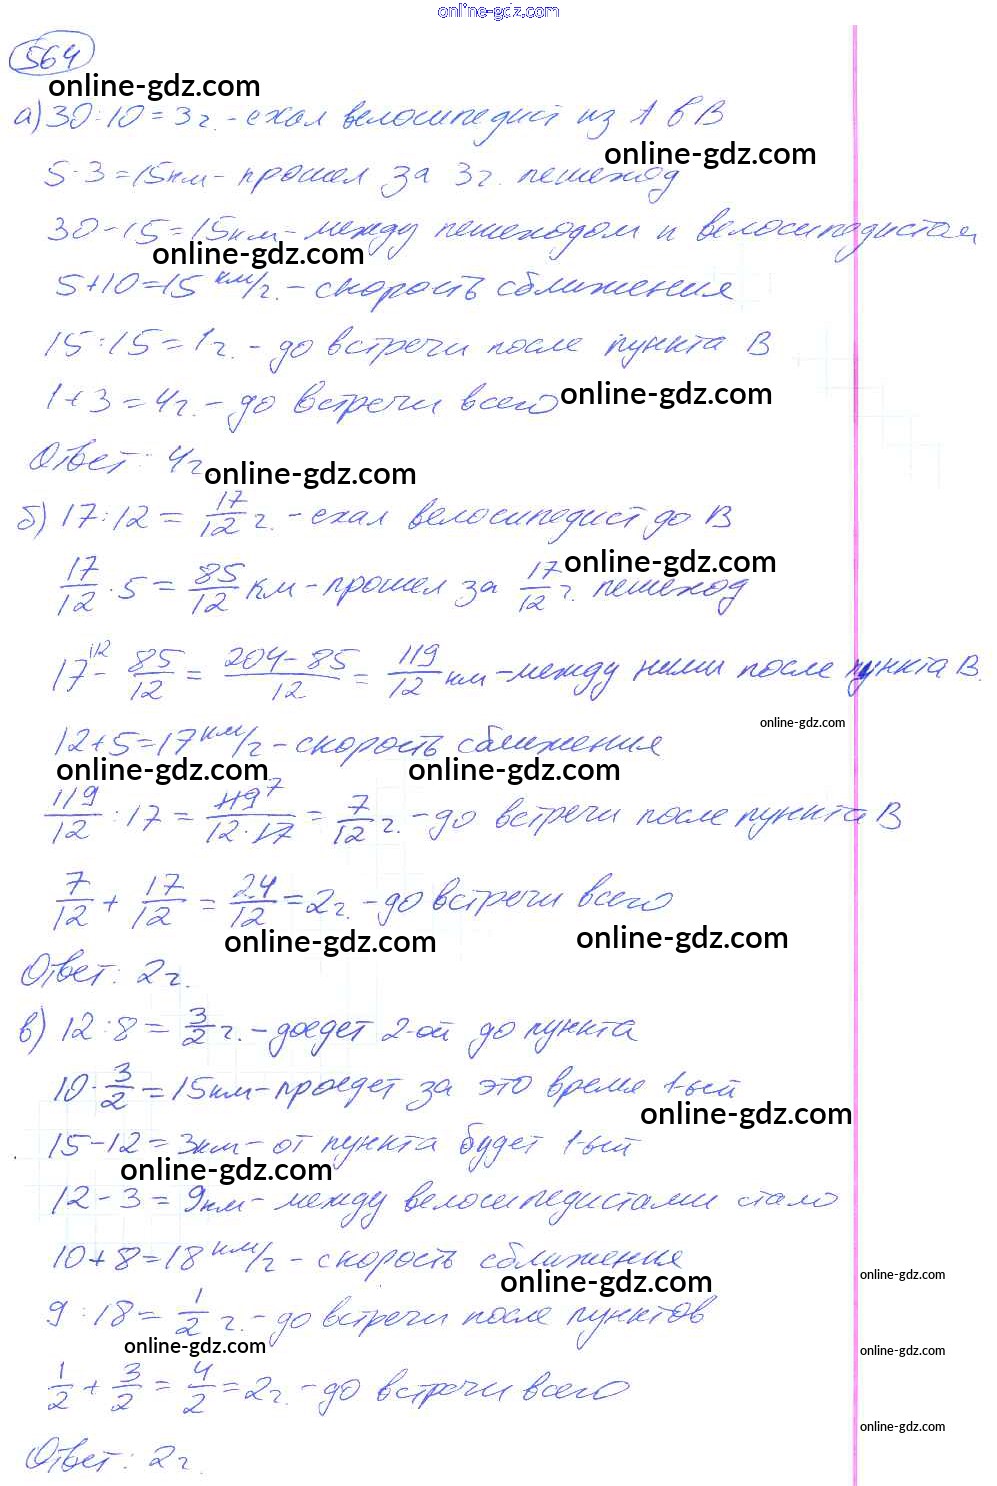 online-gdz.com
564
online-gdz.com
а) 30:10=3г.- ехал велосипедист из А в В
online-gdz.com
5·3=15км- прошел за 3г. пешеход
30-15=15км- между пешеходом и велосипедистом
online-gdz.com
5+10=15 км/г.- скорость сближения
15:15=1г.- до встречи после пункта В
1+3=4г.- до встречи всего
online-gdz.com
Ответ: 4г.
online-gdz.com
б) 17:12 = 17/12 г.- ехал велосипедист до В
online-gdz.com
17/12 · 5 = 85/12 км- прошел за 17/12 г. пешеход
17^{12} - 85/12 = (204-85)/12 = 119/12 км- между ними после пункта В.
online-gdz.com
12+5=17 км/г- скорость сближения
online-gdz.com online-gdz.com
119/12 : 17 = 119^7/(12·17) = 7/12 г.- до встречи после пункта В
7/12 + 17/12 = 24/12 = 2г.- до встречи всего
online-gdz.com online-gdz.com
Ответ: 2г.
в) 12:8 = 3/2 г.- доедет 2-ой до пункта
10·3/2 = 15км- проедет за это время 1-ый
online-gdz.com
15-12=3км- от пункта будет 1-ый
online-gdz.com
12-3=9км- между велосипедистами стало
10+8=18 км/г- скорость сближения
online-gdz.com
online-gdz.com
9:18 = 1/2 г.- до встречи после пунктов
online-gdz.com
online-gdz.com
1/2 + 3/2 = 4/2 = 2г.- до встречи всего
online-gdz.com
Ответ: 2г.